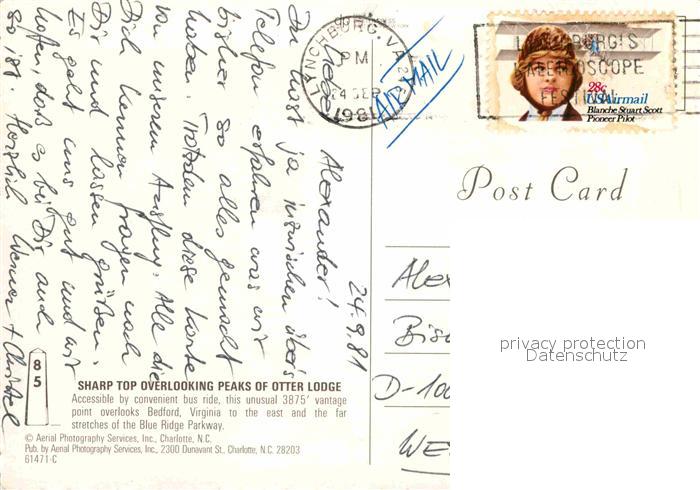 24.9.81
Lieber Alexander!
Du hast ja inzwischen übers
Telefon erfahren was wir
bisher so alles gemacht
haben. Trotzdem diese Karte
von unserem Ausflug. Alle die
Dich kennen fragen nach
Dir und lassen grüßen.
Es geht uns gut und wir
hoffen, daß es bei Dir auch
so ist. Herzlich Werner + Christel
LYNCHBURG, VA
PM
24 SEP
1981
AIR MAIL
KALEIDOSCOPE
FESTIVAL
28c
USAirmail
Blanche Stuart Scott
Pioneer Pilot
Post Card
Alex
Bis
D-100
WE
privacy protection
Datenschutz
8
5
SHARP TOP OVERLOOKING PEAKS OF OTTER LODGE
Accessible by convenient bus ride, this unusual 3875' vantage
point overlooks Bedford, Virginia to the east and the far
stretches of the Blue Ridge Parkway.
© Aerial Photography Services, Inc., Charlotte, N.C.
Pub. by Aerial Photography Services, Inc., 2300 Dunavant St., Charlotte, N.C. 28203
61471-C